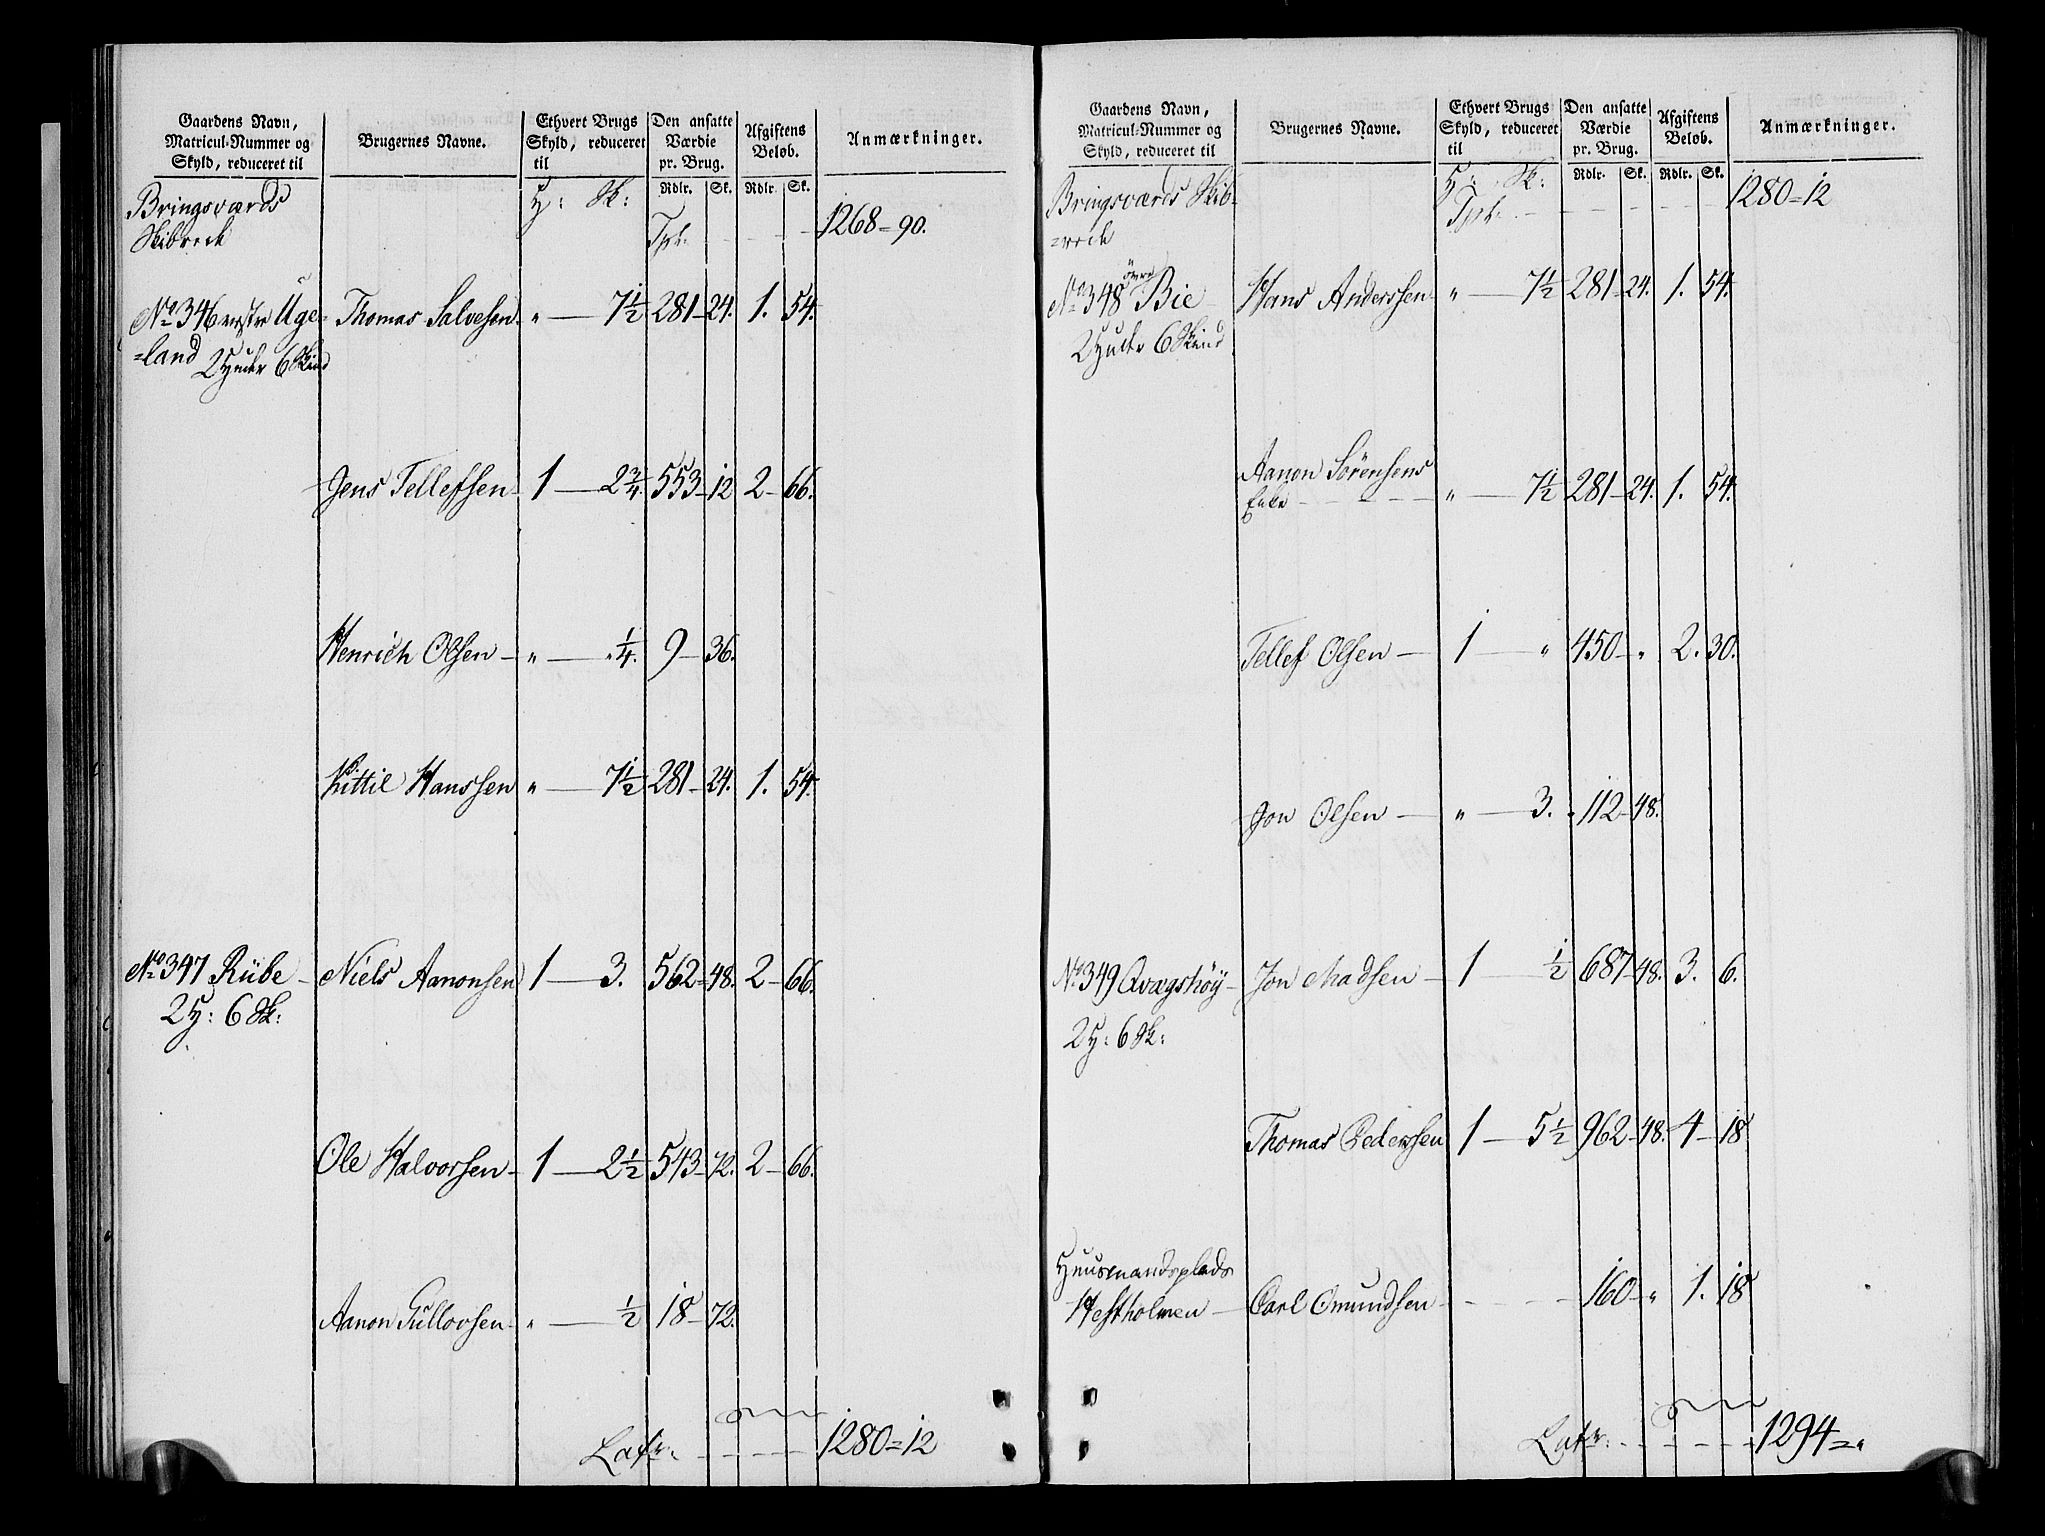 Gaardens Navn, Matricul-Nummer og Skyld, reduceret til | Brugernes Navne. | Ethvert Brugs Skyld, reduceret til | Den ansatte Værdie pr. Brug. | Afgiftens Beløb. | Anmærkninger.
Rdlr. Sk. Rdlr. Sk.
Bringsværds H: Sk:
Skibreck Tpt. 1268=90.
No 346 vestre Uge- Thomas Salvesen. " 7½ 281 24. 1. 54.
=land 2 Huder 6 Skind
Jens Tellefsen 1 2¾ 553 12 2 66.
Henrich Olsen " ¼. 9 36.
Kittil Hanssen " 7½ 281 24. 1. 54.
No 347 Rübe Niels Aanonsen 1 3. 562 48. 2 66.
2 H: 6 Sk:
Ole Halvorsen 1 2½ 543 72. 2 66.
Aanon Gullovsen " ½ 18 72.
Latr. 1280=12
Gaardens Navn, Matricul-Nummer og Skyld, reduceret til | Brugernes Navne. | Ethvert Brugs Skyld, reduceret til | Den ansatte Værdie pr. Brug. | Afgiftens Beløb. | Anmærkninger.
Rdlr. Sk. Rdlr. Sk.
Bringsværds Skib- H: Sk: 1280=12
=reck Tpt.
No 348 øvre Bie Hans Anderssen " 7½ 281 24. 1. 54.
2 Huder 6 Skind
Aanon Sørensens
Enke " 7½ 281 24. 1. 54.
Tellef Olsen 1 " 450 " 2. 30.
Jon Olsen " 3. 112 48.
No 349 Qvægshöy Jon Madsen 1 ½ 687 48. 3. 6.
2 H: 6 Sk:
Thomas Pedersen 1 5½ 962 48. 4 18
Huusmandsplads
Hestholmen Carl Omundsen 160 " 1. 18
Latr. 1294="